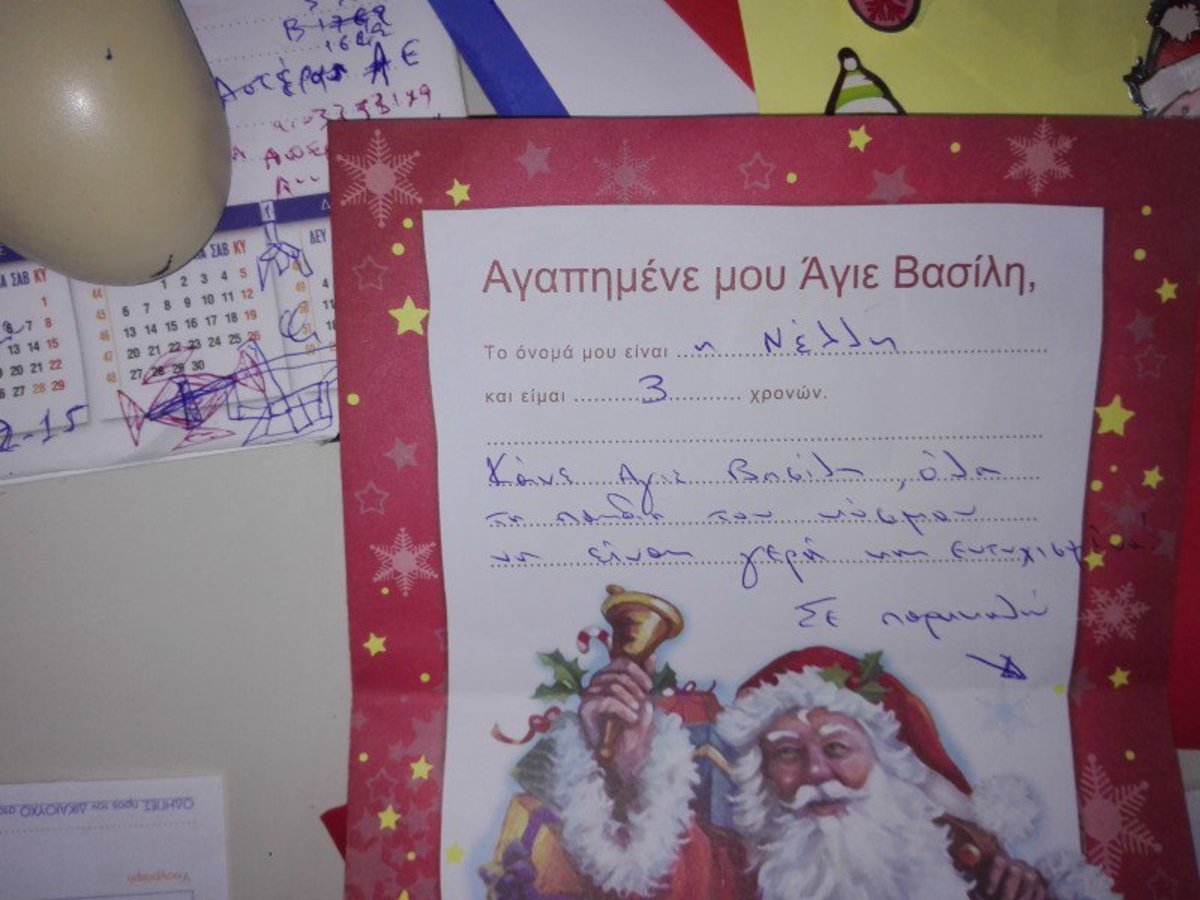 Β 1769
Αστέρας ΑΕ
ΣΑΒ ΚΥ
ΣΑΒ ΚΥ
ΔΕΥ
1
44 1 2 3 4 5
7 8
45 6 7 8 9 10 11 12
13 14 15
46 13 14 15 16 17 18 19
20 21 22
47 20 21 22 23 24 25 26
26 27 28 29
48 27 28 29 30
2-15
Αγαπημένε μου Άγιε Βασίλη,
Το όνομά μου είναι η Νέλλη
και είμαι 3 χρονών.
Κάνε Αγιε Βασίλη, όλα
τα παιδιά του κόσμου
να είναι γερά και ευτυχισμένα!
Σε παρακαλώ
ΟΔΗΓΙΕΣ προς τον ΔΙΚΑΙΟΥΧΟ
Υπογραφή